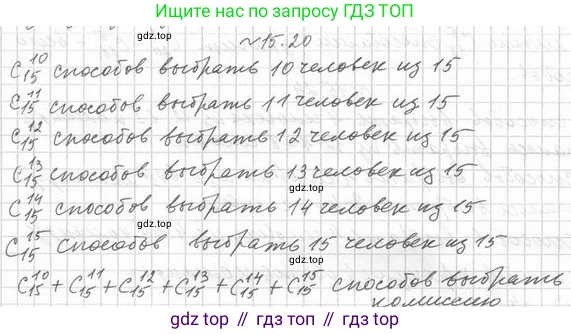 Ищите нас по запросу ГДЗ ТОП
№15.20
C₁₅¹⁰ способов выбрать 10 человек из 15
C₁₅¹¹ способов выбрать 11 человек из 15
C₁₅¹² способов выбрать 12 человек из 15
C₁₅¹³ способов выбрать 13 человек из 15
gdz.top
C₁₅¹⁴ способов выбрать 14 человек из 15
gdz.top
C₁₅¹⁵ способов выбрать 15 человек из 15
C₁₅¹⁰ + C₁₅¹¹ + C₁₅¹² + C₁₅¹³ + C₁₅¹⁴ + C₁₅¹⁵ способов выбрать
комиссию
gdz.top // гдз.top // гдз.топ